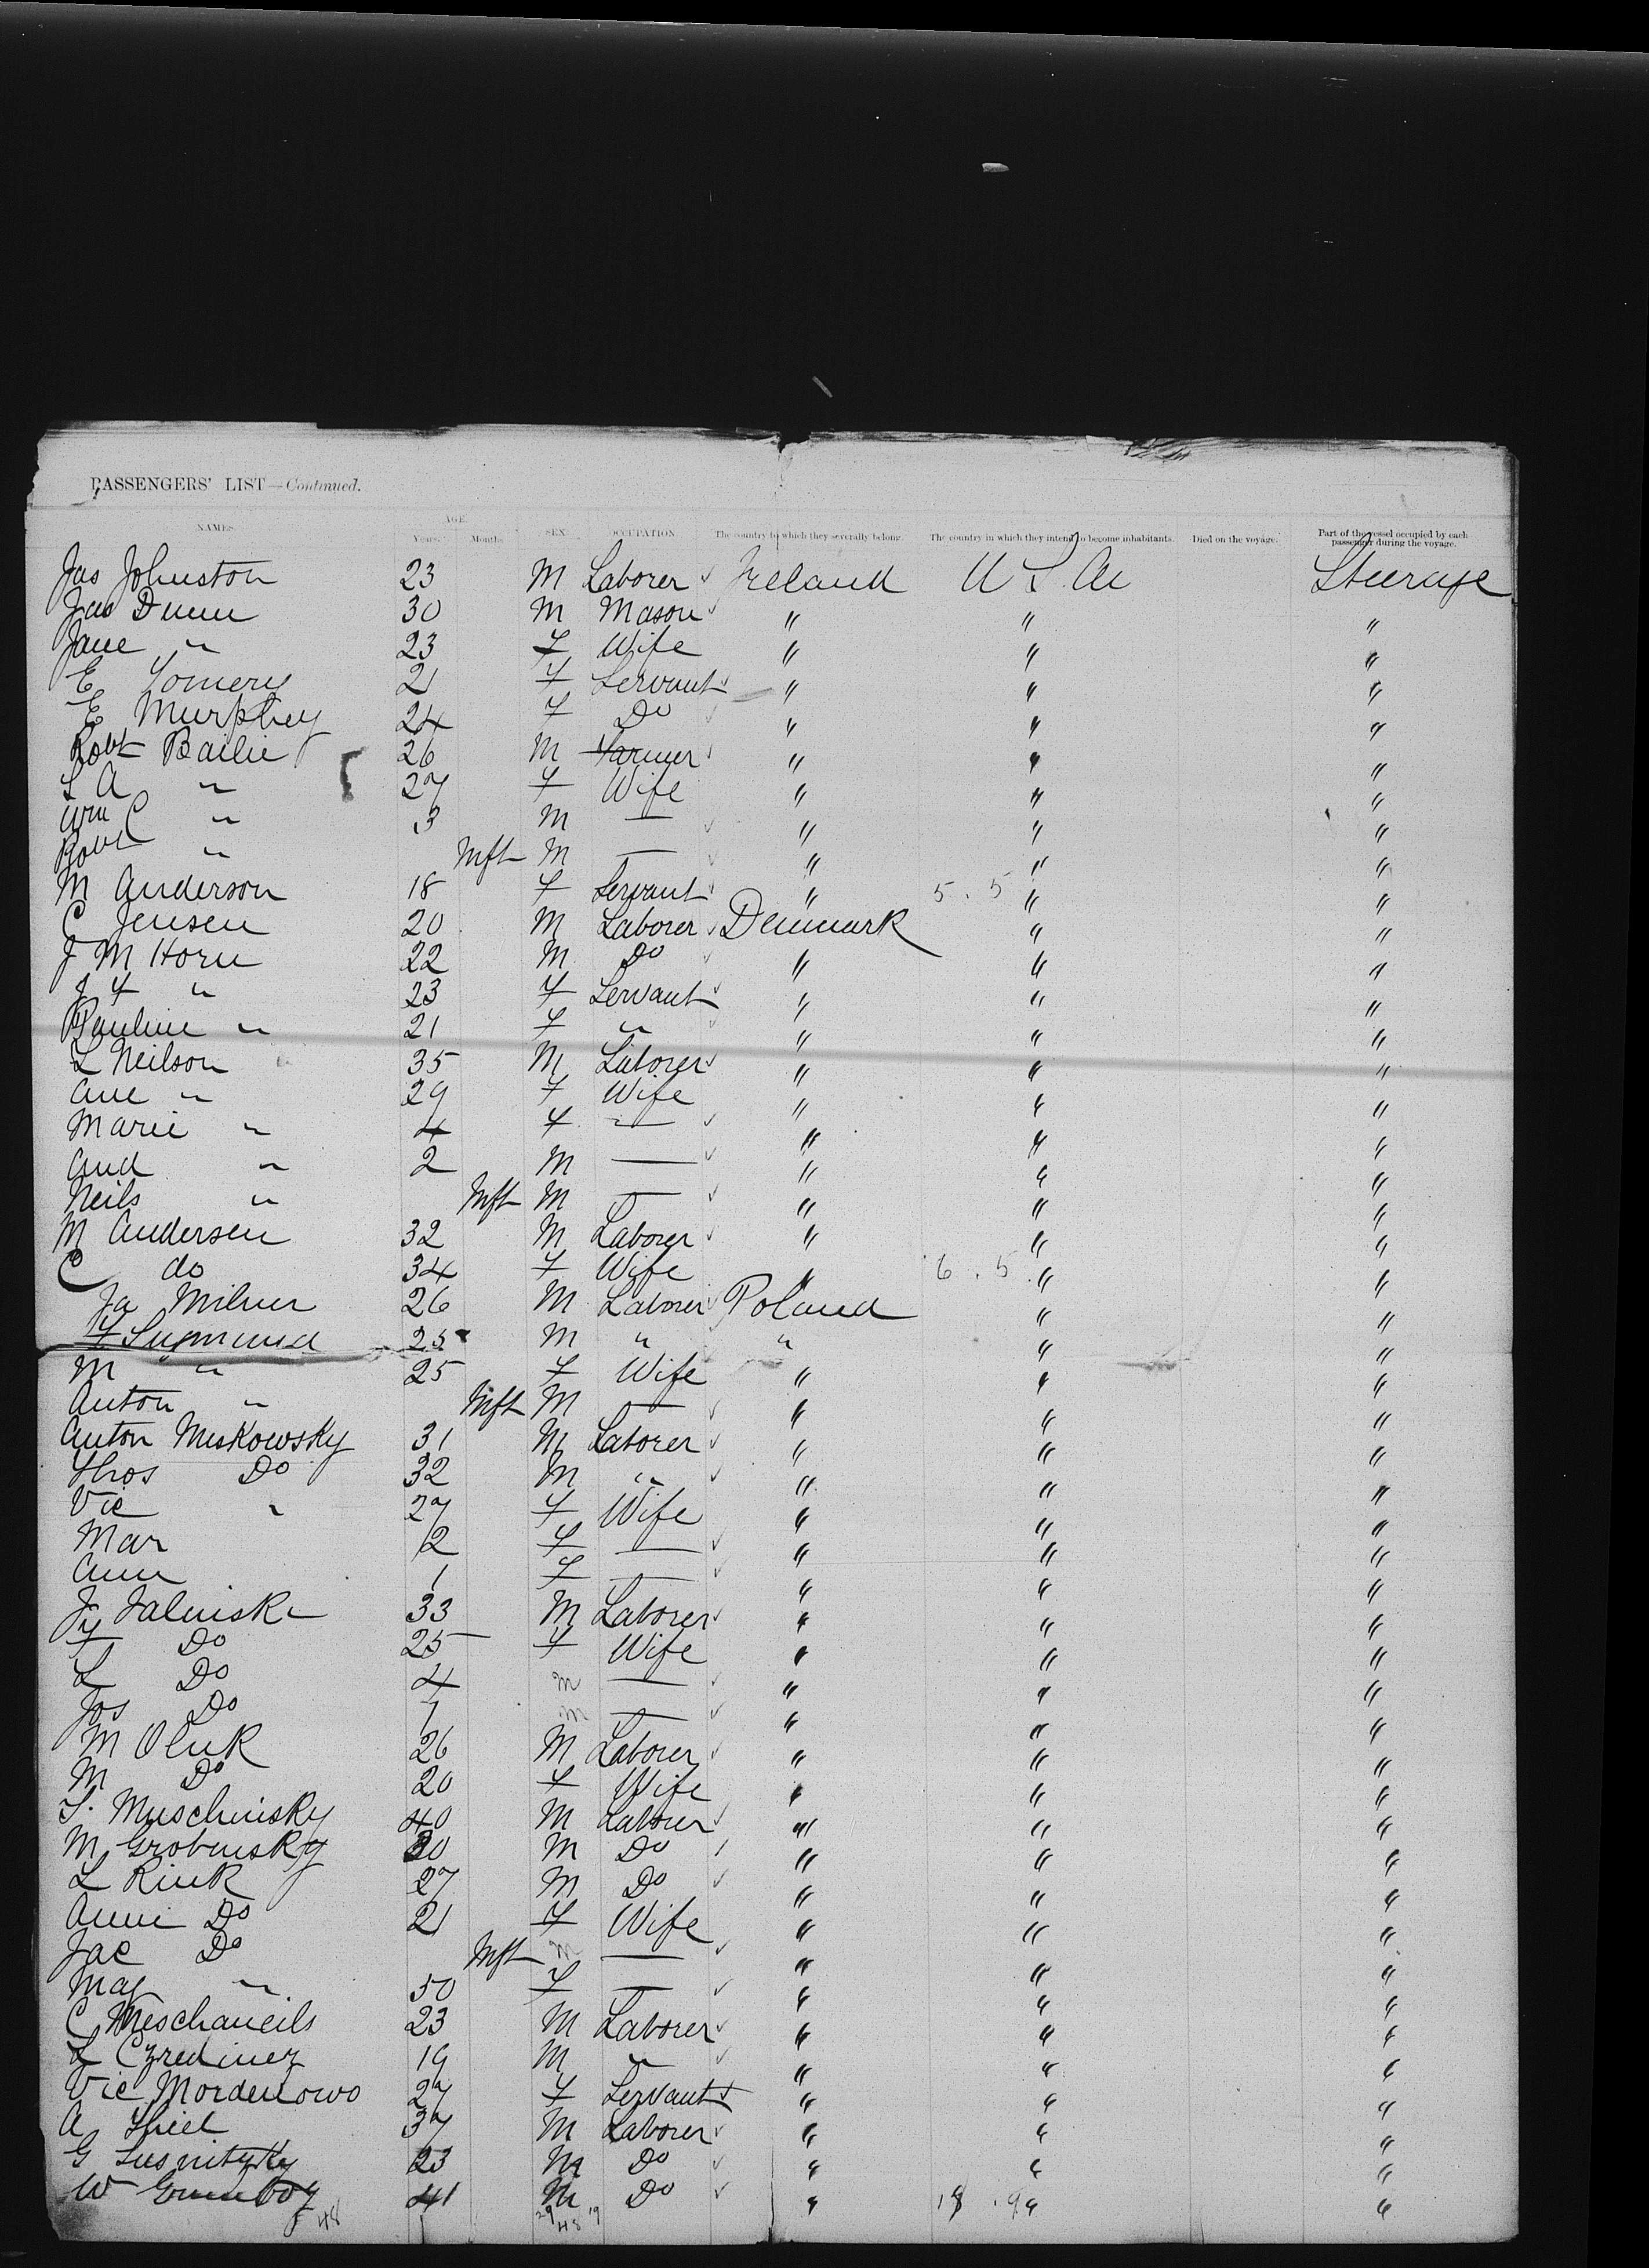 PASSENGERS' LIST—Continued.
NAMES. AGE. Years. Months. SEX. OCCUPATION The country to which they severally belong. The country in which they intend to become inhabitants. Died on the voyage. Part of the vessel occupied by each passenger during the voyage.
Jas Johnston 23 M Laborer ✓ Ireland U S A Steerage
Jas Dunn 30 M Mason ✓ " " "
Jane " 23 F Wife " " "
E 21 F Servant ✓ " " "
E Murphy 24 F Do ✓ " " "
Robt Bailie 26 M Farmer ✓ " " "
S A " 27 F Wife " " "
Wm C " 3 M — ✓ " " "
Robt " Inft M — ✓ " " "
M Anderson 18 F Servant ✓ " 5. 5 " "
C Jensen 20 M Laborer ✓ Denmark " "
J M Horn 22 M Do ✓ " " "
J F " 23 F Servant ✓ " " "
Pauline " 21 F " ✓ " " "
L Neilson 35 M Laborer ✓ " " "
Ane " 29 F Wife " " "
Marie " 4 F — ✓ " " "
And " 2 M — ✓ " " "
Neils " Inft M — ✓ " " "
M Andersen 32 M Laborer ✓ " " "
C do 34 F Wife " 6. 5. " "
Ja Milner 26 M Laborer ✓ Poland " "
F Sigmund 25 M " " " "
M " 25 F Wife " " "
Anton " Inft M — ✓ " " "
Anton Miskowsky 31 M Laborer ✓ " " "
Thos Do 32 M " ✓ " " "
Vic " 27 F Wife " " "
Mar 2 F — ✓ " " "
Ann 1 F — ✓ " " "
33 M Laborer ✓ " " "
F Do 25 F Wife " " "
L Do 4 m — ✓ " " "
Jos Do 1 m — ✓ " " "
M Oluk 26 M Laborer ✓ " " "
M Do 20 F Wife " " "
S. Muschinsky 40 M Laborer ✓ " " "
M Grobinsky 30 M Do ✓ " " "
L Rink 27 M Do ✓ " " "
Anni Do 21 F Wife " " "
Jac Do Inft m — ✓ " " "
Mag " 50 F — ✓ " " "
C Meschaneils 23 M Laborer ✓ " " "
L 19 M " ✓ " " "
Vic Mordenowo 27 F Servant ✓ " " "
A Thiel 37 M Laborer ✓ " " "
G 23 M Do " " "
W 41 M Do ✓ " 18 . 9 " "
48 29 19
48